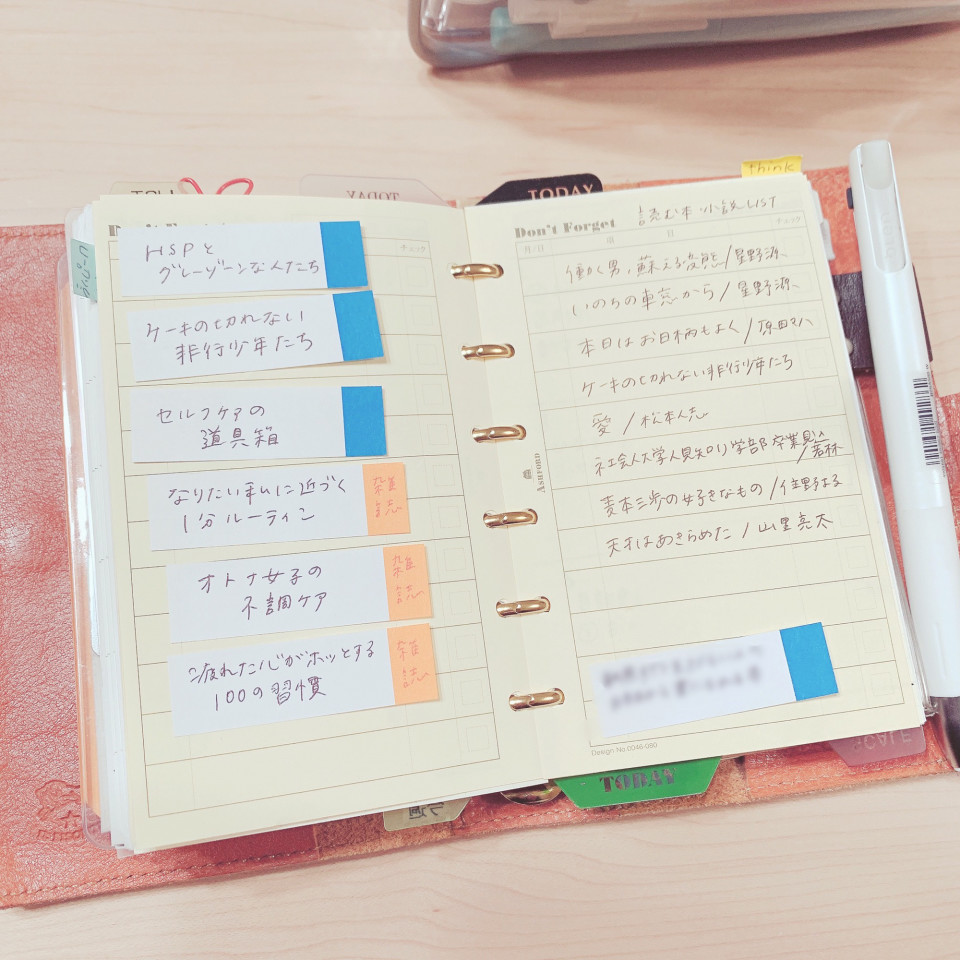 TODAY
TODAY
think
HSPと
グレーゾーンな人たち
ケーキの切れない
非行少年たち
セルフケアの
道具箱
なりたい私に近づく
1分ルーティン
雑誌
オトナ女子の
不調ケア
雑誌
疲れた心がホッとする
100の習慣
雑誌
チェック
Don't Forget
読む本 小説LIST
月/日
曜
日
チェック
働く男、蘇える変態/星野源
いのちの車窓から/星野源
本日はお日柄もよく/原田マハ
ケーキの切れない非行少年たち
愛/松本人志
社会人大学人見知り学部卒業見込/若林
麦本三歩の好きなもの/住野よる
天才はあきらめた/山里亮太
Ashford
Design No.0046-080
TODAY
SCALE